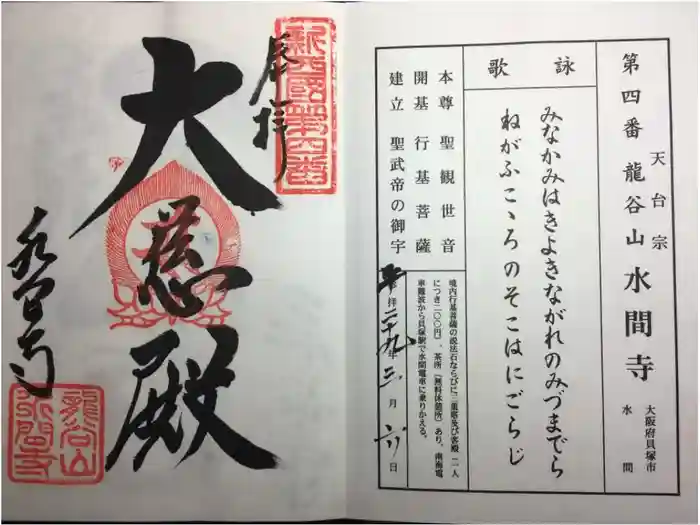 第四番 天台宗 龍谷山 水間寺 大阪府貝塚市水間
詠歌
みなかみはきよきながれのみづまでら
ねがふこゝろのそこはにごらじ
本尊 聖観世音
開基 行基菩薩
建立 聖武帝の御宇
境内行基菩薩の説法石ならびに三重塔及び客殿(一人
につき二〇〇円)、茶所(無料休憩所)あり。南海電
車難波から貝塚駅で水間電車に乗りかえる。
平 拝 二十九年 三月 日
新西國第四番
奉拝
大慈殿
水間寺
龍谷山
水間寺